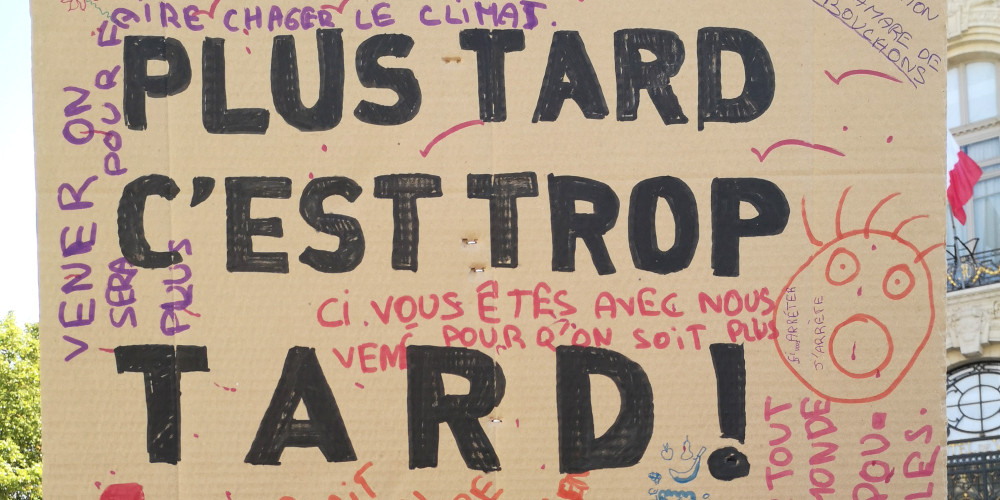 FAIRE CHAGER LE CLIMAT.
PLUS TARD
C'EST TROP
TARD!
VENER ON
SERA PLUS
POUR F
CI. VOUS ÊTES AVEC NOUS
VENÉ POUR Q'ON SOIT PLUS
SI ARRÉTER
J'ARRÊTE
MARE DE
BOUCHONS
TOUT
MONDE
POU=
LES.